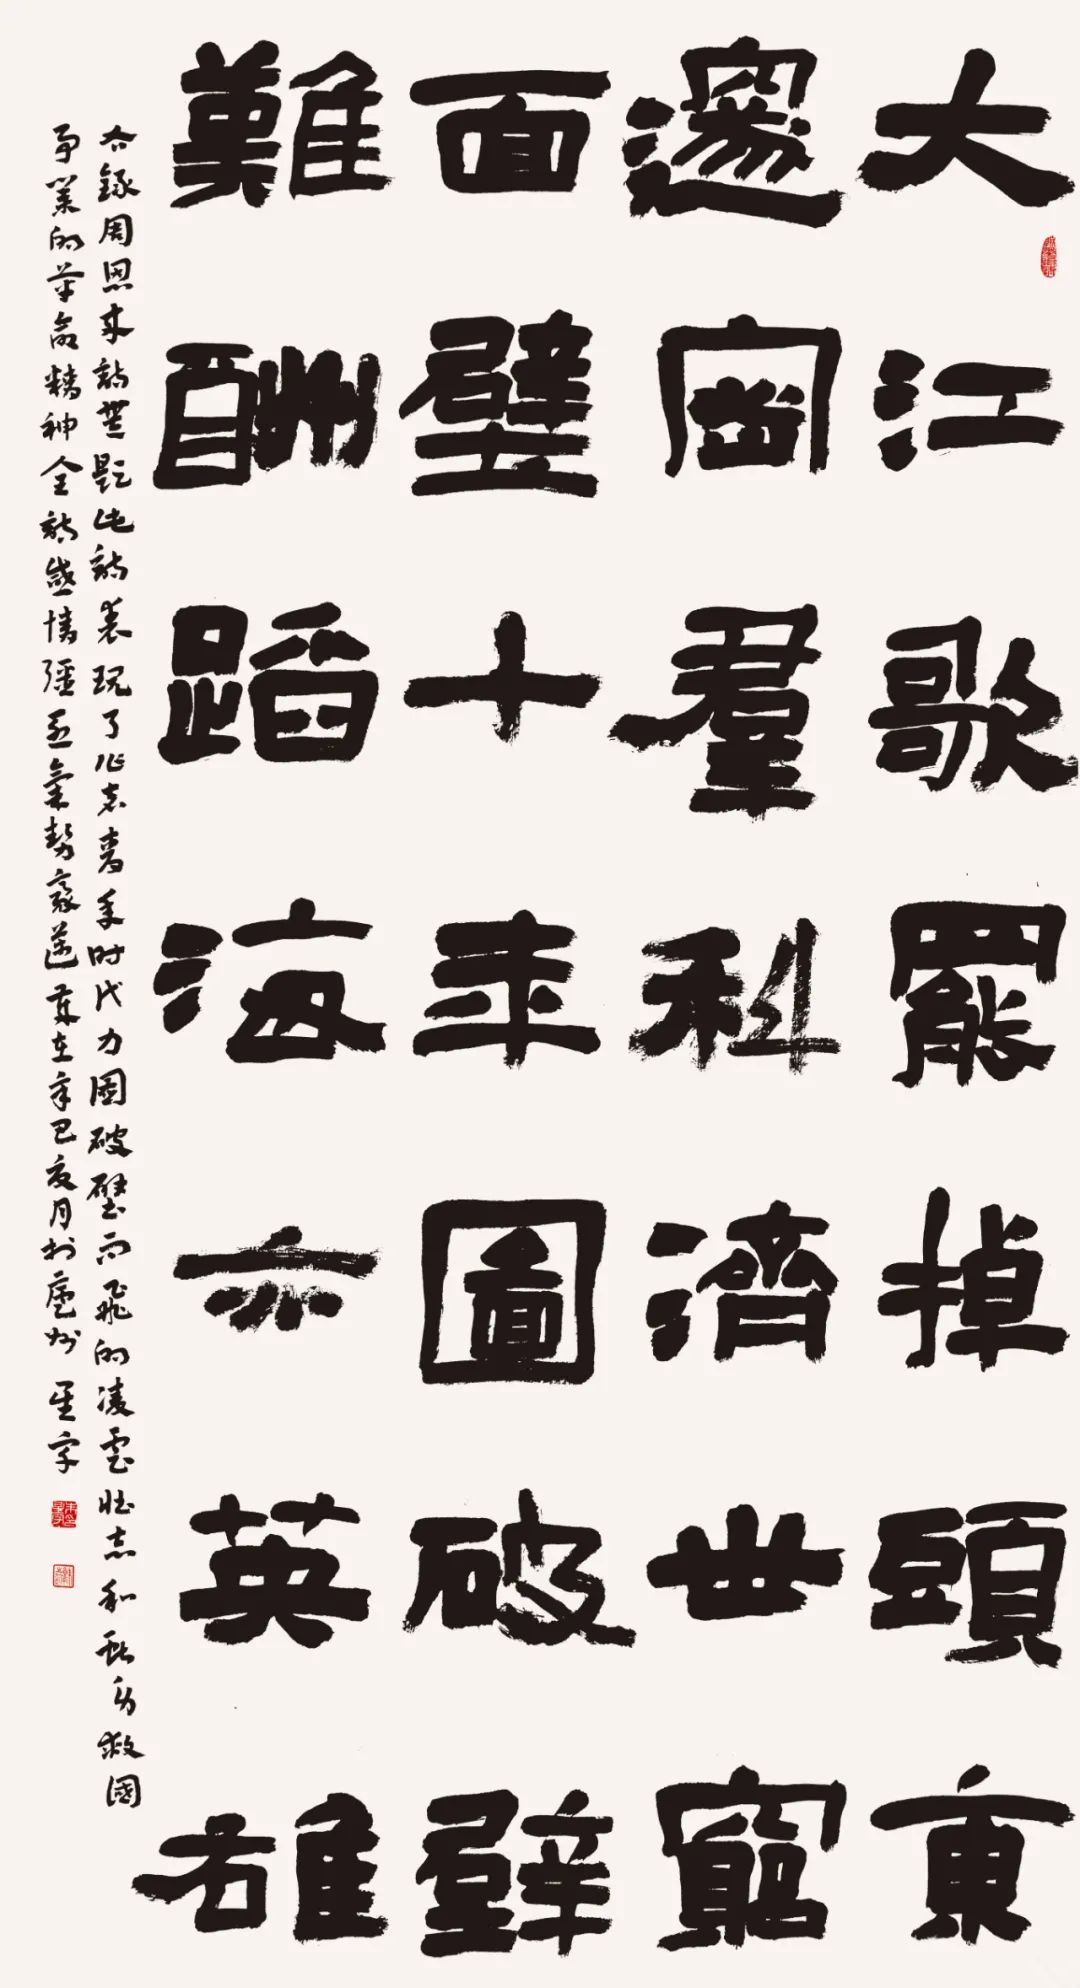 大江歌罷掉頭東
邃密羣科濟世窮
面壁十年圖破壁
難酬蹈海亦英雄
右錄周恩来詩無題此詩表現了作者青年時代力圖破壁而飛的凌雲壯志和献身救國
事業的革命精神全詩感情强烈氣勢豪邁歲在辛巳夏月於廬州星宇